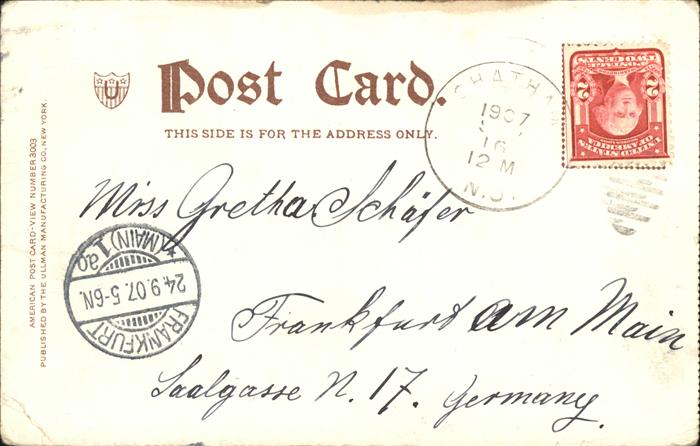 U
Post Card.
THIS SIDE IS FOR THE ADDRESS ONLY.
AMERICAN POST CARD-VIEW NUMBER 3003
PUBLISHED BY THE ULLMAN MANUFACTURING CO., NEW YORK.
CHATHAM
1907
16
12 M
N.J.
2 2
POSTAGE
TWO CENTS
UNITED STATES
OF AMERICA
Miss Gretha Schäfer
Frankfurt am Main
Saalgasse N. 17. Germany.
FRANKFURT
24.9.07. 5-6N.
* (MAIN) 1